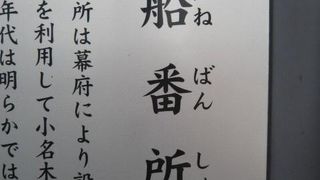 船番所
ねばんし
所は幕府により設
を利用して小名木
年代は明らかでは